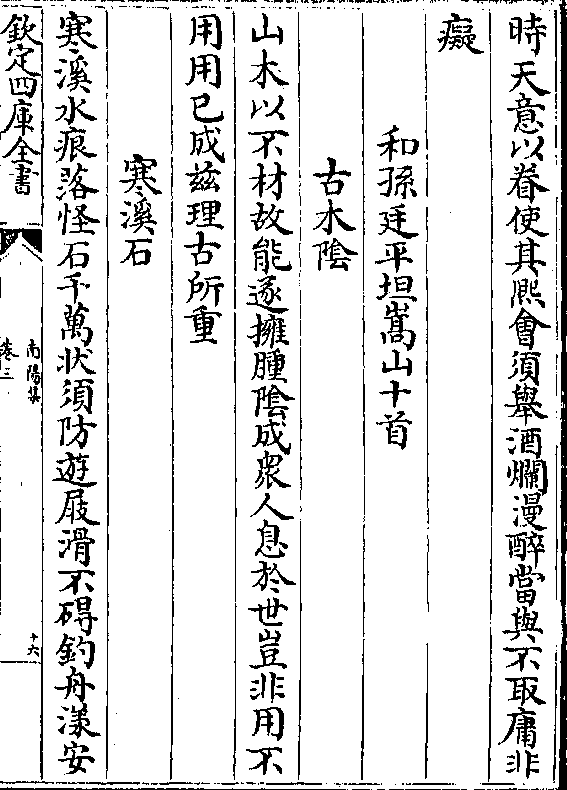 時天意以眷使其熈㑹須舉酒爛漫醉當與不取庸非
癡
和孫廷平坦嵩山十首
古木隂
山木以不材故能遂擁腫隂成衆人息於世豈非用不
用用已成兹理古所重
寒溪石
寒溪水痕落怪石千萬狀須防遊屐滑不碍釣舟漾安
欽定四庫全書
南陽集
卷三
十六